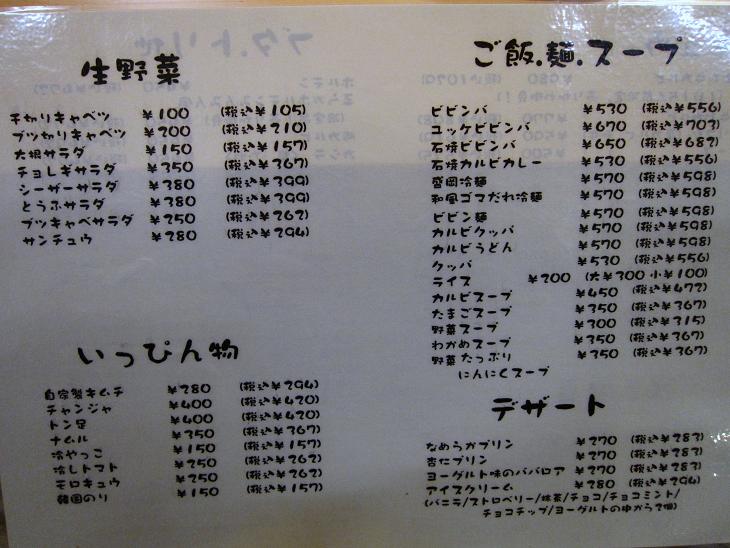 生野菜
千切りキャベツ ¥100 (税込¥105)
ブツ切りキャベツ ¥200 (税込¥210)
大根サラダ ¥150 (税込¥157)
チョレギサラダ ¥350 (税込¥367)
シーザーサラダ ¥380 (税込¥399)
とうふサラダ ¥380 (税込¥399)
ブツキャベサラダ ¥250 (税込¥262)
サンチュウ ¥280 (税込¥294)
いっぴん物
自家製キムチ ¥280 (税込¥294)
チャンジャ ¥400 (税込¥420)
トン足 ¥400 (税込¥420)
ナムル ¥350 (税込¥367)
冷やっこ ¥150 (税込¥157)
冷しトマト ¥250 (税込¥262)
モロキュウ ¥250 (税込¥262)
韓国のり ¥150 (税込¥157)
ご飯.麺.スープ
ビビンバ ¥530 (税込¥556)
ユッケビビンバ ¥670 (税込¥703)
石焼ビビンバ ¥650 (税込¥682)
石焼カルビカレー ¥530 (税込¥556)
盛岡冷麺 ¥570 (税込¥598)
和風ゴマだれ冷麺 ¥570 (税込¥598)
ビビン麺 ¥570 (税込¥598)
カルビクッパ ¥570 (税込¥598)
カルビうどん ¥570 (税込¥598)
クッパ ¥530 (税込¥556)
ライス ¥200 (大¥300 小¥100)
カルビスープ ¥450 (税込¥472)
たまごスープ ¥350 (税込¥367)
野菜スープ ¥300 (税込¥315)
わかめスープ ¥350 (税込¥367)
野菜たっぷり ¥350 (税込¥367)
にんにくスープ
デザート
なめらかプリン ¥270 (税込¥283)
杏仁プリン ¥270 (税込¥283)
ヨーグルト味のババロア ¥270 (税込¥283)
アイスクリーム ¥280 (税込¥294)
(バニラ/ストロベリー/抹茶/チョコ/チョコミント/
チョコチップ/ヨーグルトの中から2個)